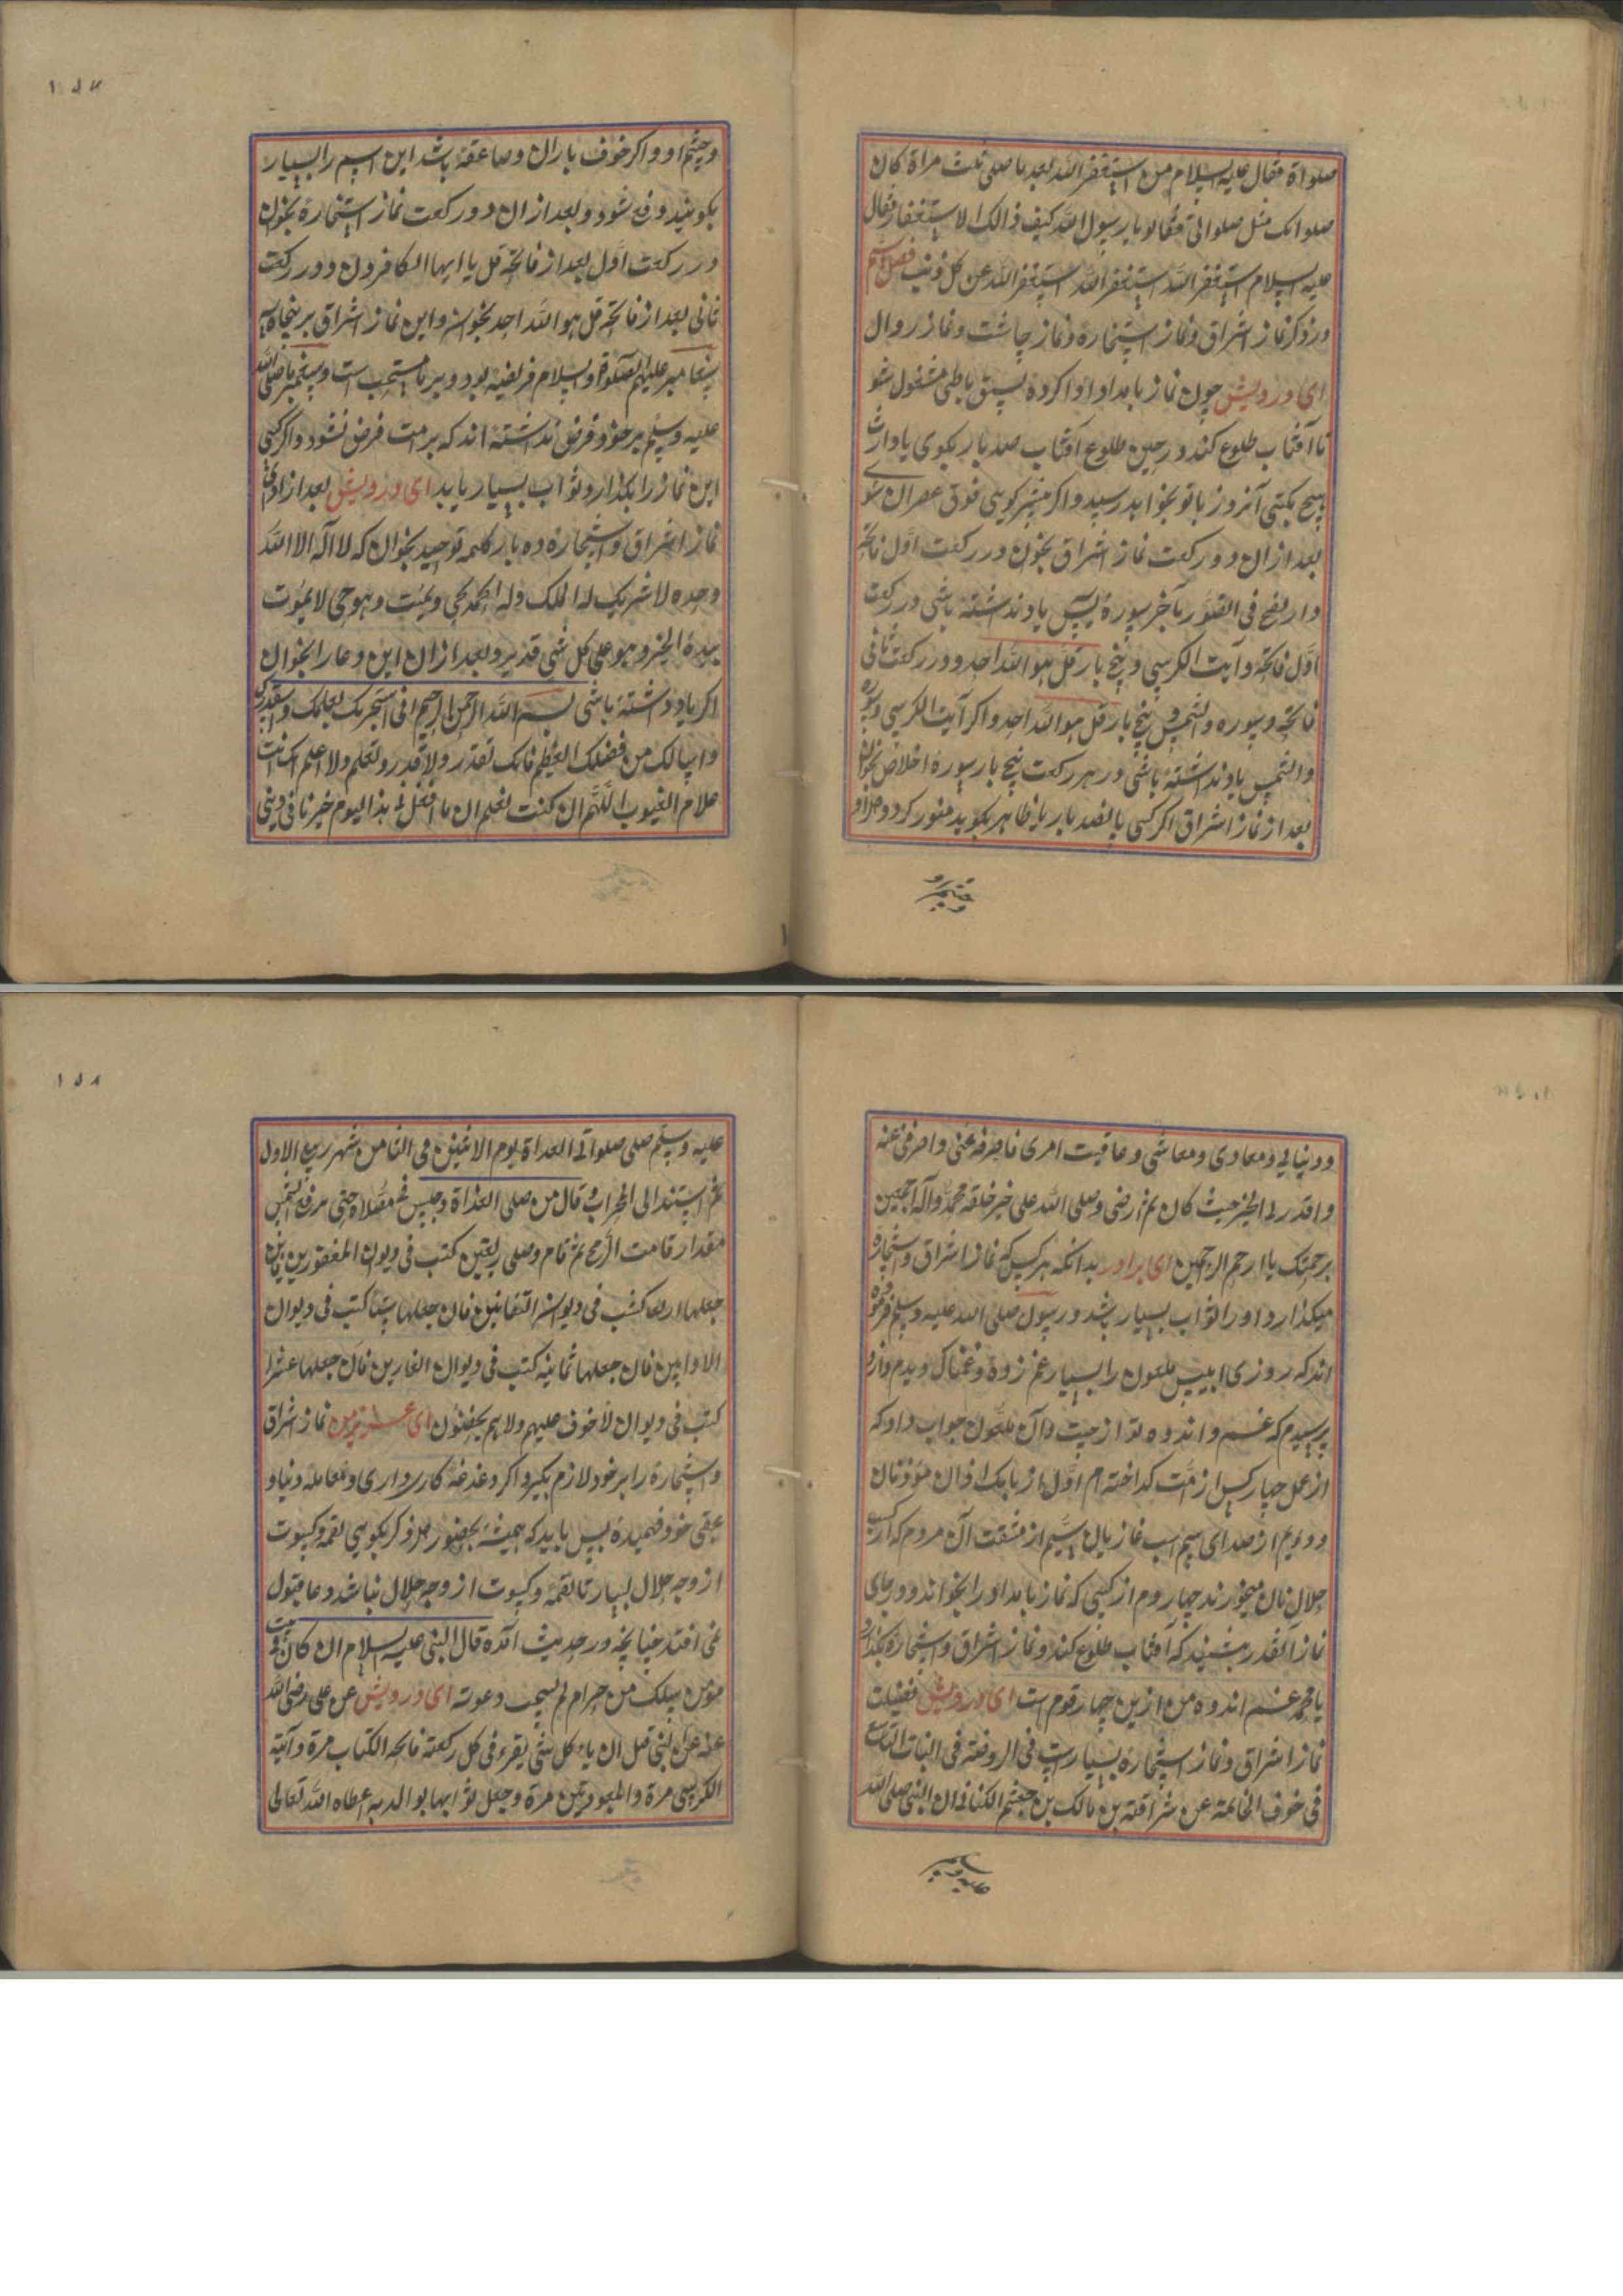 صلواة فقال علیه السلام من استغفر الله بعد ما صلی ثلث مراة کان
صلواتک مثل صلواتی فقالو یا رسول الله کیف ذالک الاستغفار فقال
علیه السلام استغفر الله استغفر الله استغفر الله عن کل ذنب فصل
در ذکر نماز اشراق و نماز استخاره و نماز چاشت و نماز زوال
ای درویش چون نماز بامداد ادا کرده بسبق باطنی مشغول شو
تا آفتاب طلوع کند در حین طلوع آفتاب صد بار بکوی یا وارث
هیچ یکتی آنروز با تو نخواهد رسید و اکر بیشتر کویی فوق عصران شوی
بعد ازان دو رکعت نماز اشراق بخوان در رکعت اول فاتحه
و از نفخ فی الصور تا آخر سوره یس یاد نداشته باشی در رکعت
اول فاتحه و آیت الکرسی و پنج بار قل هو الله احد و در رکعت ثانی
فاتحه و سوره والشمس و پنج بار قل هو الله احد و اکر آیت الکرسی و سوره
والشمس یاد نداشته باشی در هر رکعت پنج بار سورهٔ اخلاص بخوان
بعد از نماز اشراق اکر کسی پانصد بار یا ظاهر بکوید منور کردد دل او
و چشم او
و چشم او و اکر خوف باران و صاعقه باشد این اسم را بسیار
بکویند دفع شود و بعد ازان دو رکعت نماز استخاره بخوان
در رکعت اول بعد از فاتحه قل یا ایها الکافرون و در رکعت
ثانی بعد از فاتحه قل هو الله احد بخوان و این نماز اشراق بر پنجاه
پیغامبر علیهم الصلوة والسلام فریضه بود و بر ما مستحب است و پیغمبر ما صلی الله
علیه وسلم بر خود فرض نداشته اند که بر امت فرض نشود و اکر کسی
این نماز را بکذارد ثواب بسیار یابد ای درویش بعد از ادای
نماز اشراق و استخاره ده بار کلمه توحید بخوان که لا اله الا الله
وحده لا شریک له له الملک وله الحمد یحیی ویمیت وهو حی لا یموت
بیده الخیر وهو علی کل شی قدیر و بعد ازان این دعا را بخوان
اکر یاد داشته باشی بسم الله الرحمن الرحیم انی استخیرک بعلمک واستقدرک
واسالک من فضلک العظیم فانک تقدر ولا اقدر وتعلم ولا اعلم انک انت
علام الغیوب اللهم ان کنت تعلم ان ما افعل فی هذا الیوم خیر نا فی دینی
ودنیایی ومعادی ومعاشی وعاقبت امری فاصرفه عنی واصرفنی عنه
واقدر لی الخیر حیث کان ثم ارضی وصلی الله علی خیر خلقه محمد واله اجمعین
برحمتک یا ارحم الراحمین ای برادر بدانکه هر کس که نماز اشراق و استخاره
میکذارد او را ثواب بسیار باشد و رسول صلی الله علیه وسلم فرموده
اند که روزی ابلیس ملعون را بسیار غم زده و غمناک دیدم و ازو
پرسیدم که غم و اندوه تو از چیست و آن ملعون جواب داد که
از عمل چهار کس از امت کداخته ام اول از بانک اذان مؤذنان
و دویم از صدای سم اسب غازیان سیم از مشقت آن مردم که از کسب
حلال نان میخورند چهاروم از کسی که نماز بامداد را بخواند و در جای
نماز آنقدر بنشیند که آفتاب طلوع کند و نماز اشراق و استخاره بکذارد
یا محمد غم اندوه من ازین چهار قوم است ای درویش فضیلت
نماز اشراق و نماز استخاره بسیار است فی الروضه فی الباب
فی خوف الخاتمة عن شراقة بن مالک بن جعشم الکنانی ان النبی صلی الله
علیه وسلم
علیه وسلم صلی صلواتی الغداة یوم الاثنین فی الثامن شهر ربیع الاول
ثم استند الی المحراب قال من صلی الغداة وجلس فی مصلاه حتی یرفع الشمس
مقدار قامت الرمح ثم قام وصلی رکعتین کتب فی دیوان المغفورین فان
جعلها اربعا کتب فی دیوان فان جعلها ستا کتب فی دیوان
الاوابین فان جعلها ثمانیة کتب فی دیوان فان جعلها عشرا
کتب فی دیوان لا خوف علیهم ولا هم یحزنون ای عزیز من نماز اشراق
و استخاره را بر خود لازم بکیر و اکر دغدغه کار داری و معامله دنیا و
عقبی خود فهمیده پس باید که همیشه بحضور دل ذکر بکویی لقمه و کسوت
از وجه حلال بسیار تا لقمه و کسوت از وجه حلال نباشد دعا قبول
نمی افتد چنانچه در حدیث آمده قال النبی علیه السلام ان کان فی بیت
مؤمن سلک من حرام لم یستجب دعوته ای درویش عن علی رضی الله
عنه عن النبی قبل ان کل شی یقرء فی کل رکعة فاتحه الکتاب مرة و آیة
الکرسی مرة والمعوذتین مرة وجعل ثوابها بوالدیه اعطاه الله تعالی